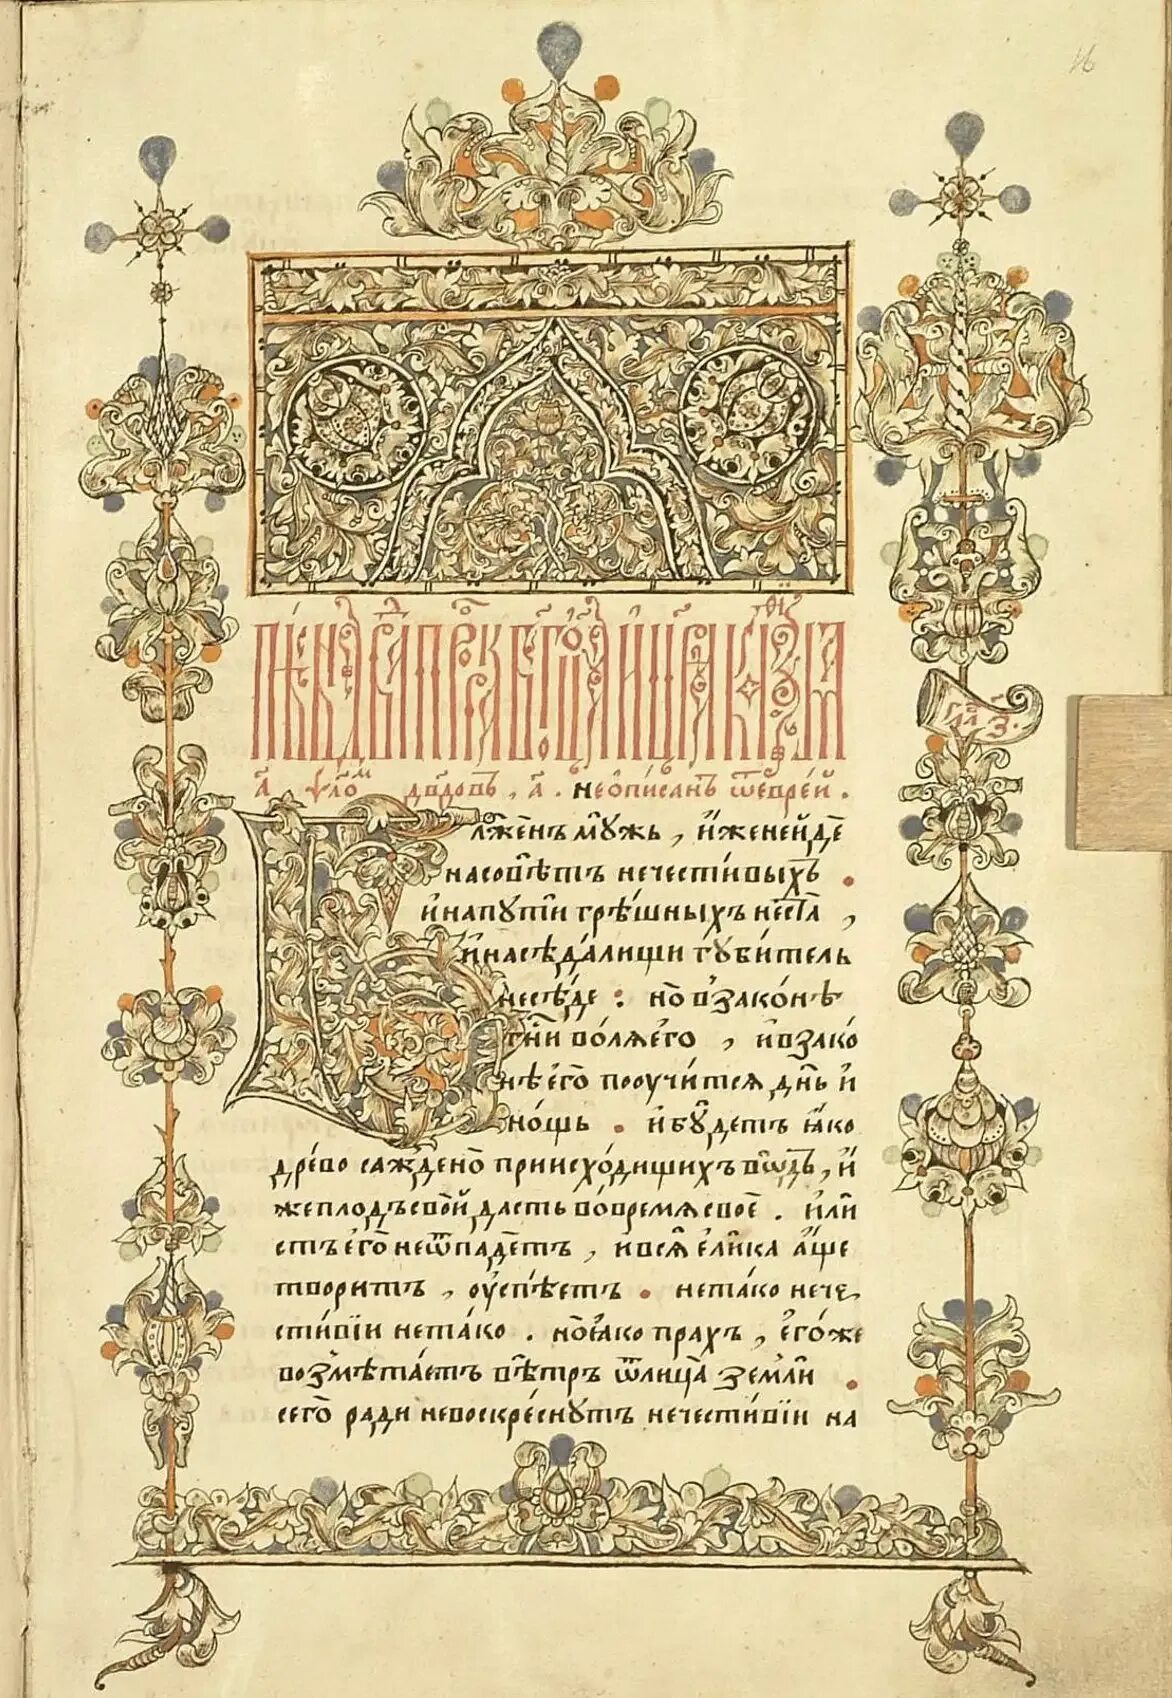 а҃ . ѱало́м дв҃довъ , а҃ . не ѻ҆писа́нъ ѿ є҆врє́й .
Бл҃же́нъ мꙋ́жь , и҆́же не и҆́де
на совѣ́тъ нечести́выхъ .
и҆ на пꙋтїи грѣ́шныхъ не ста̀ ,
и҆ на сѣда́лищи гꙋби́тель
не сѣ́де : но̀ в̾ зако́нѣ
гн҃и во́лѧ є҆го̀ , и҆ в̾ зако́
нѣ є҆го̀ поꙋчи́тсѧ дн҃ь и҆
но́щь . и҆ бꙋ́детъ ꙗ҆́ко
дре́во сажде́но при и҆схо́дищихъ во́дъ , и҆́
же пло́дъ сво́й да́сть во́ времѧ своѐ . и҆ ли́
стъ є҆го̀ не ѿпаде́тъ , и҆ всѧ̀ є҆ли́ка а҆́ще
твори́тъ , оу҆спѣ́етъ . не та́ко нече
сти́вїи не та́ко . но̀ ꙗ҆́ко пра́хъ , є҆го́же
возмѣта́етъ вѣ́тръ ѿ лица̀ землѝ .
сего̀ ра́ди не воскре́снꙋтъ нечести́вїи на